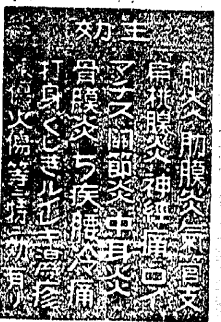 主効
肺炎肋膜炎氣管支
扁桃腺炎神経痛ロイ
マチス関節炎中耳炎
骨膜炎ぢ疾腰冷痛
打身くじきルイレキ湿疹
火傷等特効有リ